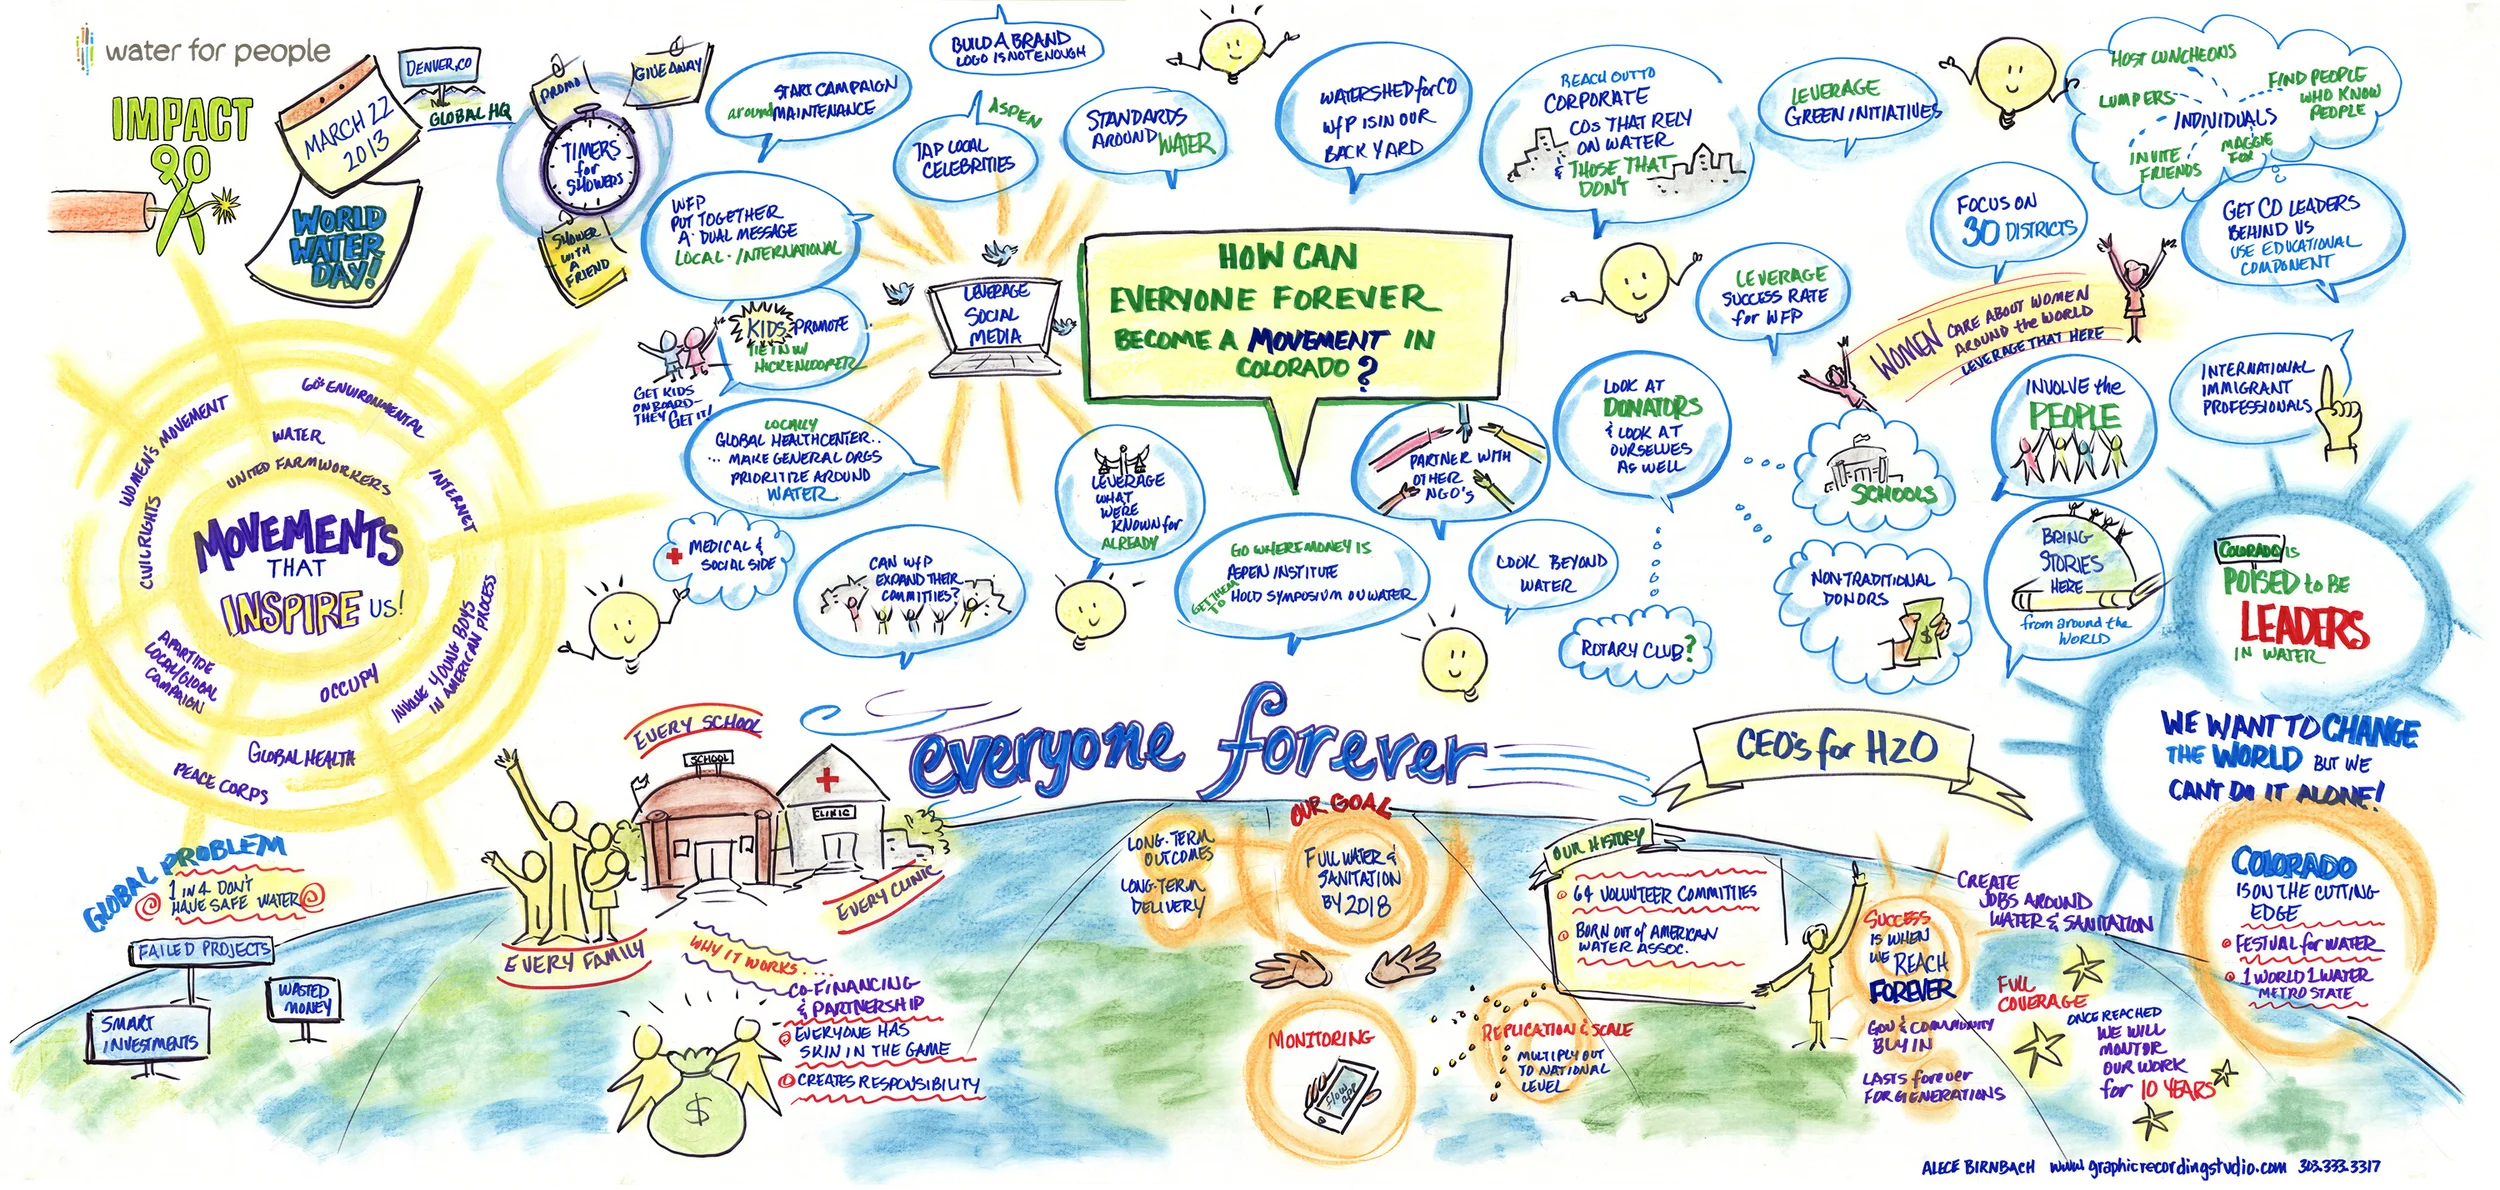 water for people
IMPACT
90
MARCH 22
2013
WORLD
WATER
DAY!
DENVER, CO
GLOBAL HQ
PROMO
GIVEAWAY
TIMERS
for
SHOWERS
SHOWER
WITH
A
FRIEND
START CAMPAIGN
around MAINTENANCE
BUILD A BRAND
LOGO IS NOT ENOUGH
ASPEN
TAP LOCAL
CELEBRITIES
STANDARDS
AROUND WATER
WATERSHED for CO
WfP IS IN OUR
BACK YARD
REACH OUT TO
CORPORATE
COS THAT RELY
ON WATER
& THOSE THAT
DON'T
LEVERAGE
GREEN INITIATIVES
HOST LUNCHEONS
LUMPERS
FIND PEOPLE
WHO KNOW
PEOPLE
INDIVIDUALS
INVITE
FRIENDS
MAGGIE
FOX
FOCUS ON
30 DISTRICTS
GET CO LEADERS
BEHIND US
USE EDUCATIONAL
COMPONENT
WFP
PUT TOGETHER
A · DUAL MESSAGE
LOCAL · INTERNATIONAL
KIDS PROMOTE
TIE IN W/
HICKENLOOPER
GET KIDS
ON BOARD-
THEY GET IT!
LEVERAGE
SOCIAL
MEDIA
HOW CAN
EVERYONE FOREVER
BECOME A MOVEMENT IN
COLORADO?
LEVERAGE
SUCCESS RATE
for WFP
WOMEN CARE ABOUT WOMEN
AROUND the WORLD
LEVERAGE THAT HERE
INTERNATIONAL
IMMIGRANT
PROFESSIONALS
INVOLVE the
PEOPLE
LOOK AT
DONATORS
& LOOK AT
OURSELVES
AS WELL
SCHOOLS
LOCALLY
GLOBAL HEALTHCENTER..
... MAKE GENERAL ORGS
PRIORITIZE AROUND
WATER
MEDICAL &
SOCIAL SIDE
CAN WfP
EXPAND THEIR
COMMITTIES?
LEVERAGE
WHAT
WERE
KNOWN for
ALREADY
PARTNER WITH
OTHER
NGO'S
GO WHERE MONEY IS
ASPEN INSTITUTE
GET THEM TO
HOLD SYMPOSIUM ON WATER
LOOK BEYOND
WATER
ROTARY CLUB?
NON-TRADITIONAL
DONORS
$
BRING
STORIES
HERE
from around the
WORLD
COLORADO IS
POISED to BE
LEADERS
IN WATER
WE WANT TO CHANGE
THE WORLD BUT WE
CAN'T DO IT ALONE!
MOVEMENTS
THAT
INSPIRE US!
UNITED FARMWORKERS
WATER
60's ENVIRONMENTAL
WOMEN'S MOVEMENT
CIVIL RIGHTS
INTERNET
INVOLVE YOUNG BOYS
IN AMERICAN PROCESS
OCCUPY
APARTIDE
LOCAL/GLOBAL
CAMPAIGN
GLOBAL HEALTH
PEACE CORPS
GLOBAL PROBLEM
1 IN 4 DON'T
HAVE SAFE WATER
FAILED PROJECTS
SMART
INVESTMENTS
WASTED
MONEY
EVERY SCHOOL
SCHOOL
CLINIC
EVERY CLINIC
EVERY FAMILY
everyone forever
CEO's for H2O
WHY IT WORKS....
CO-FINANCING
& PARTNERSHIP
EVERYONE HAS
SKIN IN THE GAME
CREATES RESPONSIBILITY
$
LONG-TERM
OUTCOMES
LONG-TERM
DELIVERY
OUR GOAL
FULL WATER &
SANITATION
BY 2018
MONITORING
FLOW
APP
REPLICATION & SCALE
MULTIPLY OUT
TO NATIONAL
LEVEL
OUR HISTORY
64 VOLUNTEER COMMITTIES
BORN OUT of AMERICAN
WATER ASSOC.
SUCCESS
IS WHEN
WE REACH
FOREVER
GOV & COMMUNITY
BUY IN
LASTS forever
FOR GENERATIONS
CREATE
JOBS AROUND
WATER & SANITATION
FULL
COVERAGE
ONCE REACHED
WE WILL
MONITOR
OUR WORK
for 10 YEARS
COLORADO
IS ON THE CUTTING
EDGE
FESTIVAL for WATER
1 WORLD 1 WATER
METRO STATE
ALECE BIRNBACH www.graphicrecordingstudio.com 303.333.3317